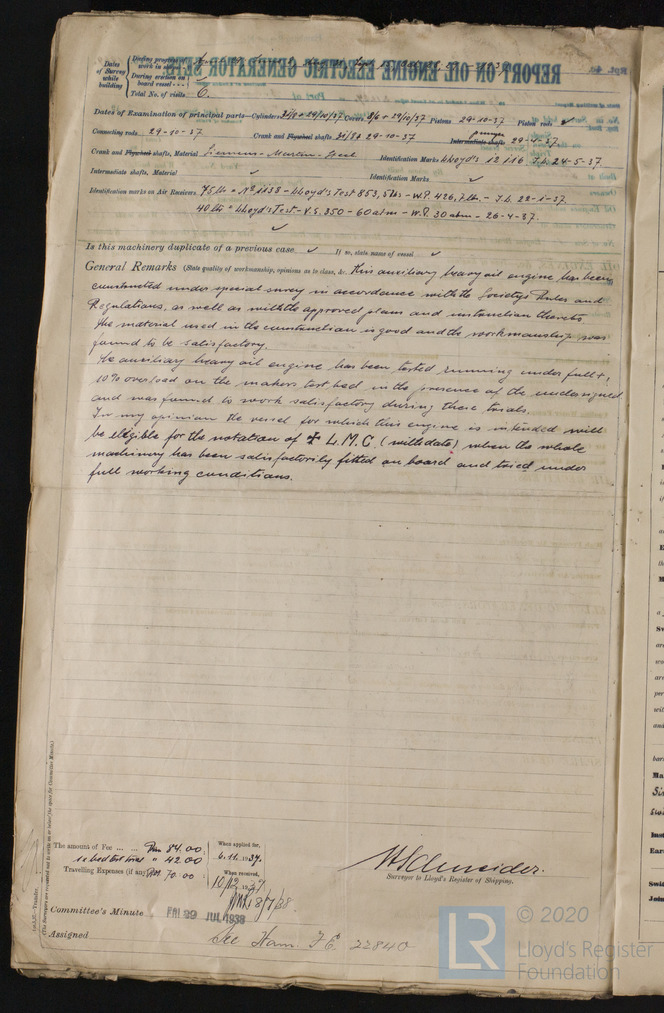 Rpt. 4c.
REPORT ON OIL ENGINE ELECTRIC GENERATOR SETS
Dates of Survey while building
During progress of work in shops
During erection on board vessel
Total No. of visits 6.
Dates of Examination of principal parts—Cylinders 31/8 + 29/10/37 Covers 3/6 + 29/10/37 Pistons 29-10-37 Piston rods ✓
Connecting rods 29-10-37 Crank and Flywheel shafts 31/8 & 29-10-37 Intermediate shafts 29-4-37
Crank and Flywheel shafts, Material Siemens-Martin-Steel Identification Marks Lloyd's 12116 24-5-37
Intermediate shafts, Material ✓ Identification Marks ✓
Identification marks on Air Receivers 75 ltr + No 1138 - Lloyd's Test 853,5 lbs - W.P. 426,7 lbs - 22-1-37
40 ltr + Lloyd's Test - 350 - 60 atm - W.P. 30 atm - 26-4-37.
✓
Is this machinery duplicate of a previous case ✓ If so, state name of vessel ✓
General Remarks (State quality of workmanship, opinions as to class, &c. This auxiliary heavy oil engine has been
constructed under special survey in accordance with the Society's Rules and
Regulations, as well as with the approved plans and instruction thereto.
The material used in the construction is good and the workmanship was
found to be satisfactory.
The auxiliary heavy oil engine has been tested running under full +,
10% overload on the makers test bed in the presence of the undersigned
and was found to work satisfactory during these trials.
In my opinion the vessel for which this engine is intended will
be eligible for the notation of ✠ L.M.C. (with date) when the whole
machinery has been satisfactorily fitted on board and tried under
full working conditions.
The amount of Fee ... 84.00 When applied for,
" 42.00 6.11.1937.
Travelling Expenses (if any) 70.00 When received,
18/7/38
Surveyor to Lloyd's Register of Shipping.
Committee's Minute FRI 29 JUL 1938
Assigned See Ham. F.E. 22840
(The Surveyors are requested not to write on or below the space for Committee's Minute.)
LR
© 2020
Lloyd's Register
Foundation